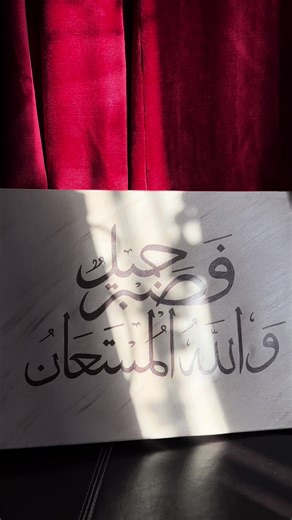 فَصَبْرٌ جَمِيلٌ
وَاللَّهُ الْمُسْتَعَانُ